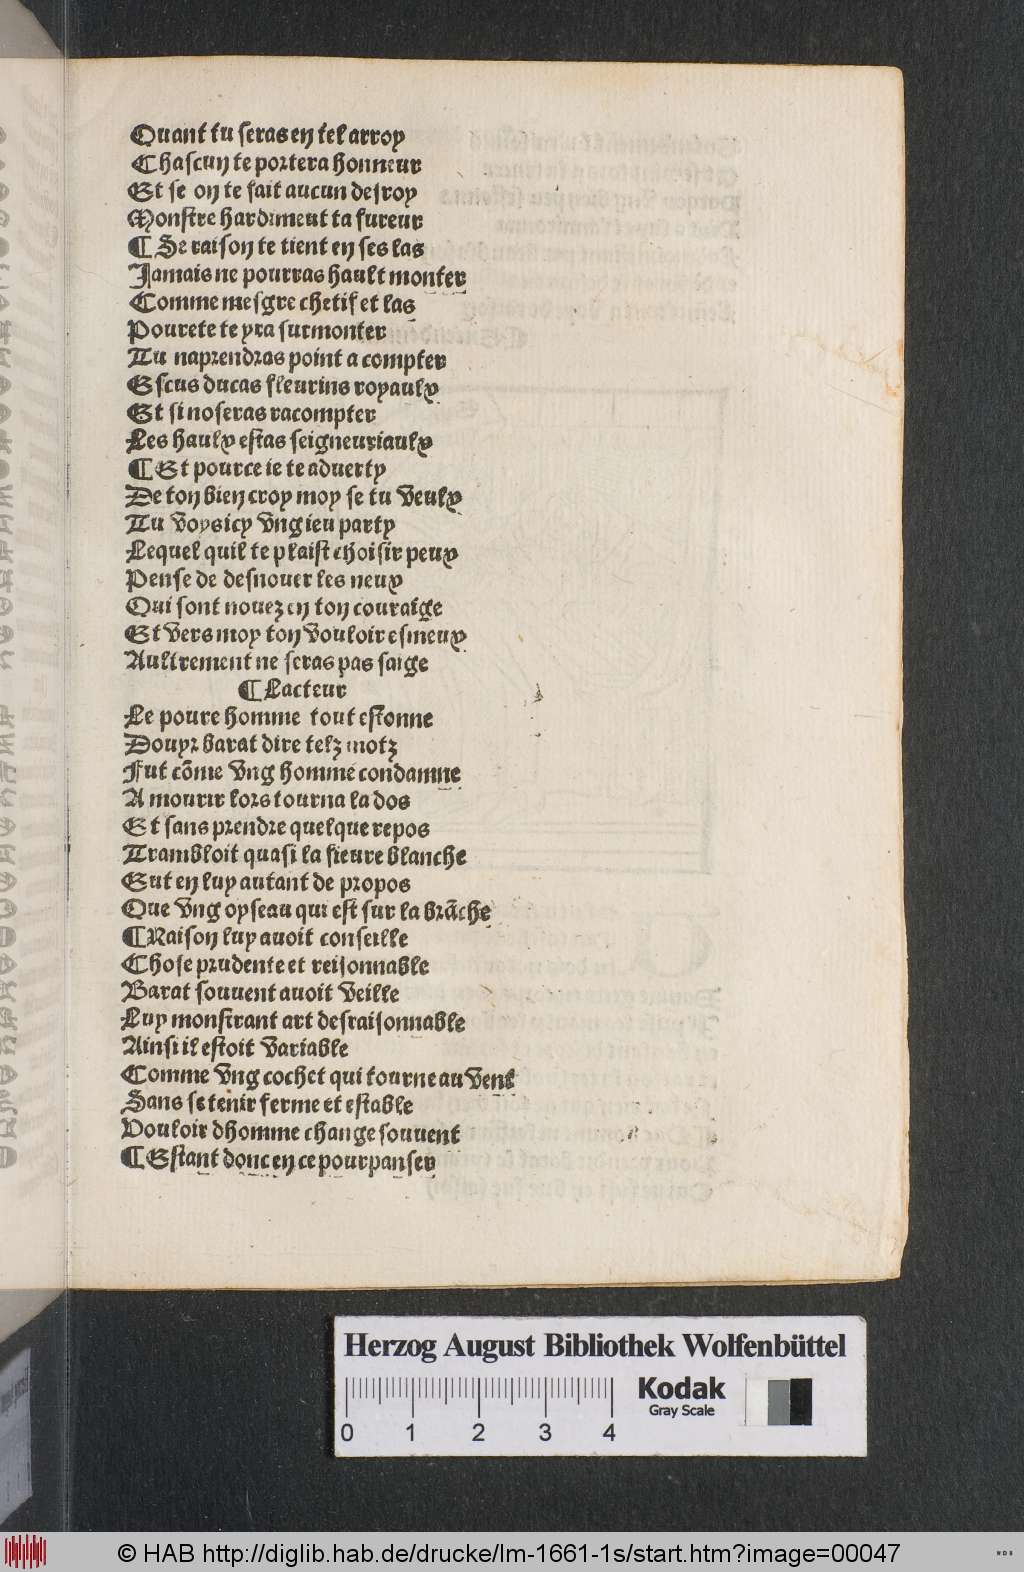 Quant tu seras en tel arroy
Chascun te portera honneur
Et se on te fait aucun desroy
Monstre hardiment ta fureur
¶ Se raison te tient en ses las
Jamais ne pourras hault monter
Comme mesgre chetif et las
Pourete te yra surmonter
Tu naprendras point a compter
Escus ducas fleurins royaulx
Et si noseras racompter
Les haulx estas seigneuriaulx
¶ Et pource ie te aduerty
De ton bien croy moy se tu veulx
Tu voys icy vng ieu party
Lequel quil te plaist choisir peux
Pense de desnouer les neux
Qui sont nouez en ton couraige
Et vers moy ton vouloir esmeux
Aultrement ne seras pas saige
¶ Lacteur
Le poure homme tout estonne
Douyr barat dire telz motz
Fut cõme vng homme condamne
A mourir lors tourna la dos
Et sans prendre quelque repos
Trambloit quasi la fieure blanche
Eut en luy autant de propos
Que vng oyseau qui est sur la brãche
¶ Raison luy auoit conseille
Chose prudente et reisonnable
Barat souuent auoit veille
Luy monstrant art desraisonnable
Ainsi il estoit variable
Comme vng cochet qui tourne au vent
Sans se tenir ferme et estable
Vouloir dhomme change souuent
¶ Estant donc en ce pourpanser
Herzog August Bibliothek Wolfenbüttel
Kodak
Gray Scale
0 1 2 3 4
© HAB http://diglib.hab.de/drucke/lm-1661-1s/start.htm?image=00047